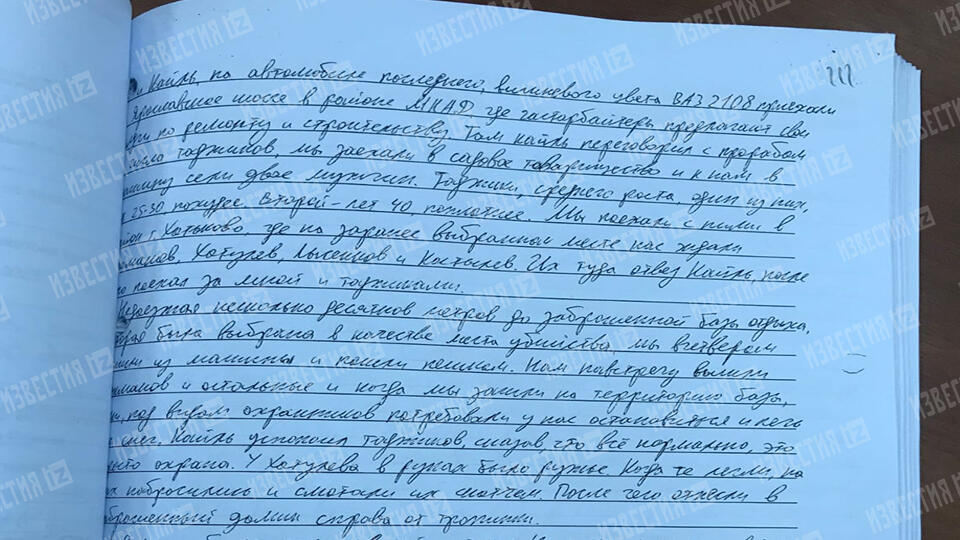 и Кайль, на автомобиле последнего, вишневого цвета ВАЗ 2108 приехали
Ярославское шоссе в районе МКАД, где гастарбайтеры предлагают свои
по ремонту и строительству. Там Кайль переговорил с прорабом
таджиков, мы заехали в садовое товарищество и к нам в
машину сели двое мужчин. Таджики, среднего роста, один из них,
25-30, похудее. Второй - лет 40, поплотнее. Мы поехали с ними в
г. Хотьково, где на заранее выбранном месте нас ждали
Хотулев, Лысенков и Костылев. Их туда отвез Кайль, после
поехал за мной и таджиками.
Недоезжая несколько десятков метров до заброшенной базы отдыха,
была выбрана в качестве места убийства, мы вчетвером
из машины и пошли пешком. Нам навстречу вышли
и остальные и когда мы зашли на территорию базы,
под видом охранников потребовали у нас остановиться и лечь
снег. Кайль успокоил таджиков, сказав, что всё нормально, это
охрана. У Хотулева в руках было ружье. Когда те легли, на
набросились и смотали их скотчем. После чего отнесли в
домик справа от тропинки.
ИЗВЕСТИЯ IZ